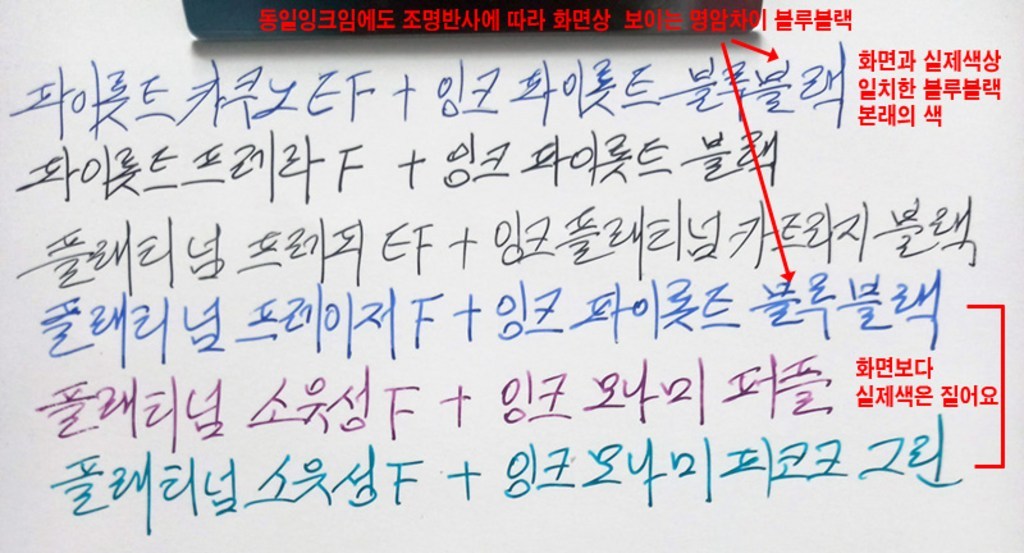 동일잉크임에도 조명반사에 따라 화면상 보이는 명암차이 블루블랙
파이롯트 카쿠노 EF + 잉크 파이롯트 블루블랙
화면과 실제색상
일치한 블루블랙
본래의 색
파이롯트 프레라 F + 잉크 파이롯트 블랙
플래티넘 프레피 EF + 잉크 플래티넘 카트리지 블랙
플래티넘 프레이저 F + 잉크 파이롯트 블루블랙
화면보다
실제색은 짙어요
플래티넘 소유성 F + 잉크 모나미 퍼플
플래티넘 소유성 F + 잉크 모나미 피코크 그린